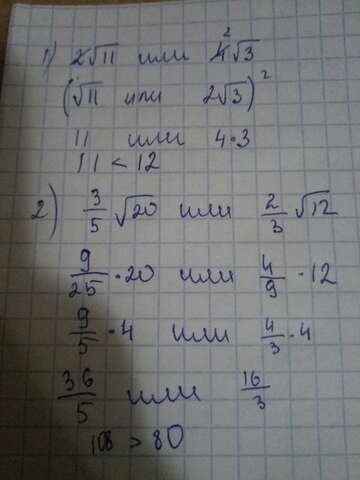 1) 2√11 или 4² √3
(√11 или 2√3)²
11 или 4·3
11 < 12
2) 3/5 √20 или 2/3 √12
9/25 · 20 или 4/9 · 12
9/5 · 4 или 4/3 · 4
36/5 или 16/3
108 > 80